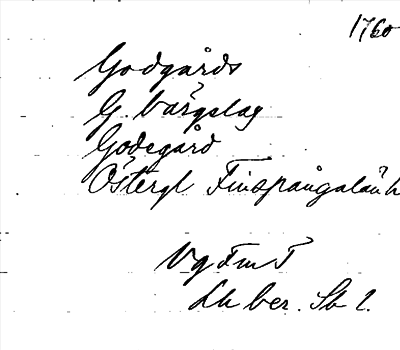 1760
Godgårds
G. bärgslag
Godegård
Östergl Finspångalän h
Vg Fm T
Lh ber. Sb 2.